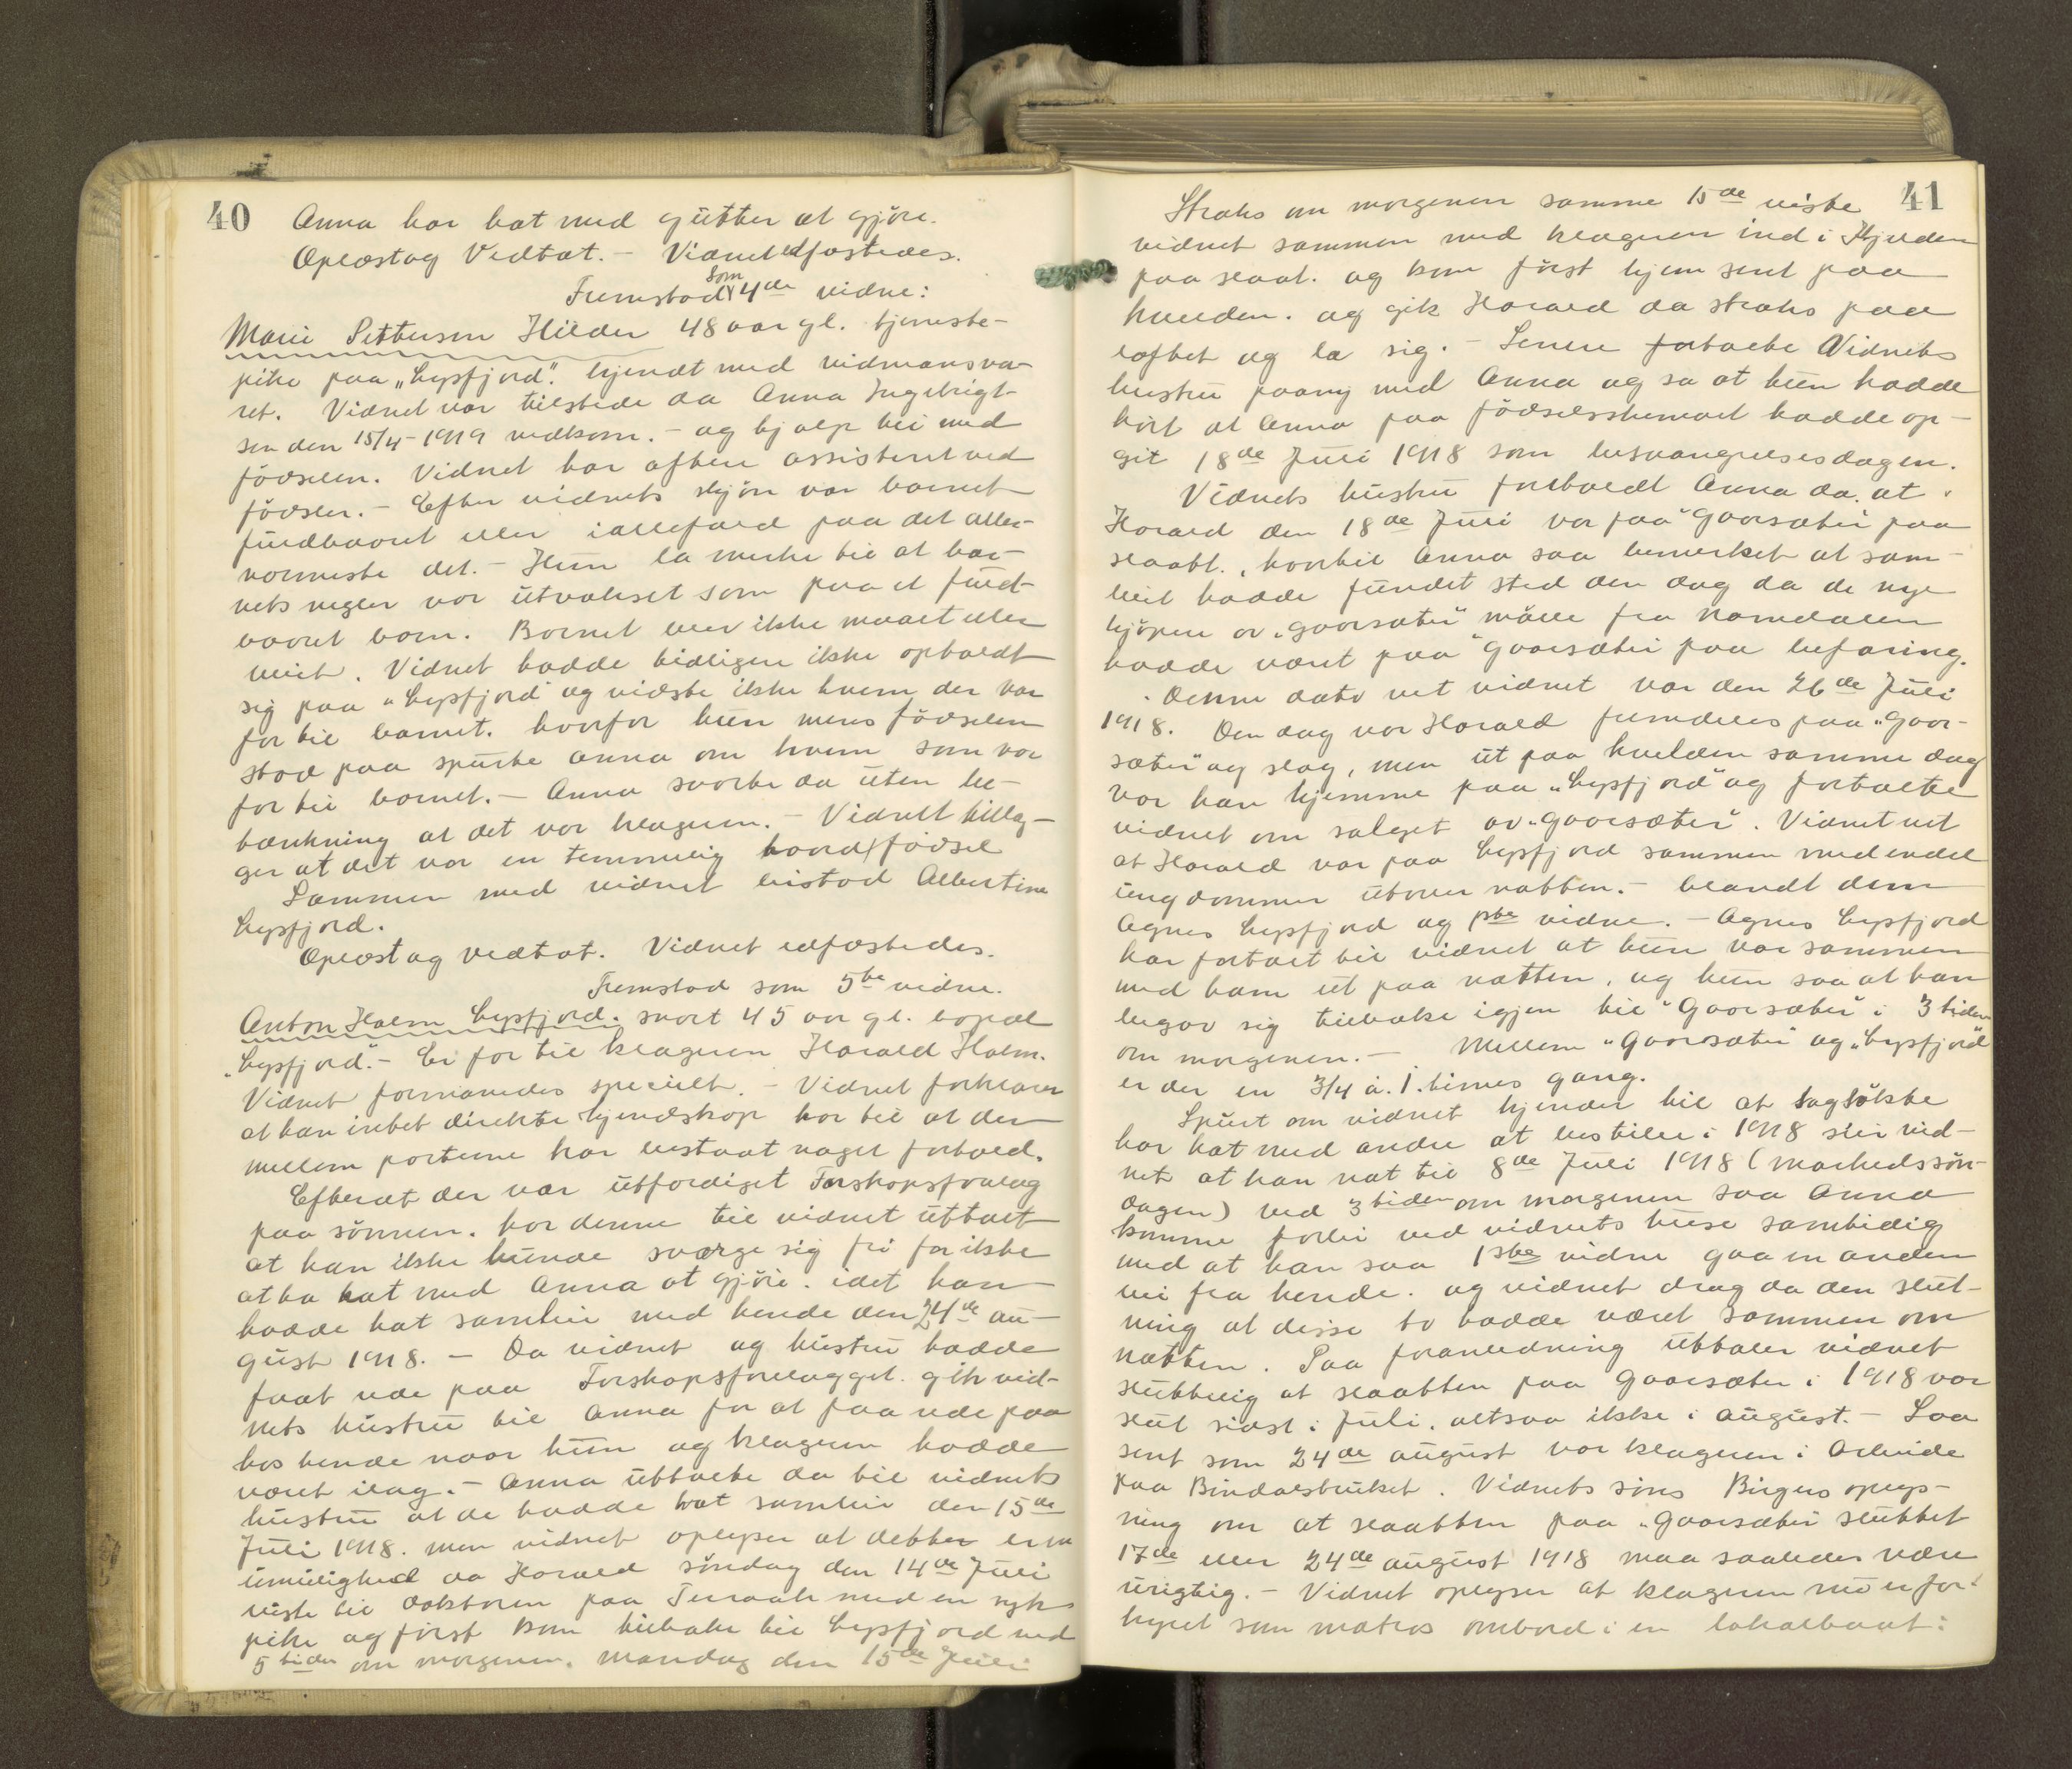 40
Anna har hat med gutter at gjöre.
Oplæst og Vedtat. - Vidnet edfæstedes.
Fremstod som 4de vidne:
Marie Pettersen Hilder 48 aar gl. tjeneste-
pike paa "Lysfjord". kjendt med vidneansva-
ret. Vidnet var tilstede da Anna Ingebrigt-
sen den 15/4-1919 nedkom. - og hjalp til med
födselen. Vidnet har oftere assisteret ved
födsler. - Efter vidnets skjön var barnet
fuldbaaret eller iallefald paa det aller-
nærmeste det. - Hun la merke til at bar-
nets negler var utvokset som paa et fuld-
baaret barn. Barnet blev ikke maalt eller
veiet. Vidnet hadde tidligere ikke opholdt
sig paa "Lysfjord" og vidste ikke hvem der var
far til barnet. hvorfor hun mens födselen
stod paa spurte Anna om hvem som var
far til barnet. - Anna svarte da uten be-
tænkning at det var klageren. - Vidnet tillæg-
ger at det var en temmelig haard födsel
Sammen med vidnet bistod Albertine
Lysfjord.
Oplæst og vedtat. Vidnet edfæstedes.
Fremstod som 5te vidne.
Anton Holm Lysfjord. snart 45 aar gl. bopæl
"Lysfjord". - Er far til klageren Harald Holm.
Vidnet formanedes specielt. - Vidnet forklarer
at han intet direkte kjendskap har til at der
mellem parterne har bestaat noget forhold.
Efterat der var utfærdiget Farskapsforelæg
paa sönnen. har denne til vidnet uttalt
at han ikke kunde sværge sig fri for ikke
at ha hat med Anna at gjöre. idet han
hadde hat samleie med hende den 24de au-
gust 1918. - Da vidnet og hustru hadde
faat rede paa Farskapsforelægget. gik vid-
nets hustru til Anna for at faa rede paa
hos hende naar hun og klageren hadde
været ilag. - Anna uttalte da til vidnets
hustru at de hadde hat samleie den 15de
Juli 1918. men vidnet oplyser at dette er en
umulighed da Harald söndag den 14de Juli
reiste til doktoren paa Terraak med en syk
pike og först kom tilbake til Lysfjord ved
5 tiden om morgenen. Mandag den 15de Juli
41
Straks om morgenen samme 15de reiste
vidnet sammen med klageren ind i Kjelden
paa slaat. og kom först hjem sent paa
kvelden. og gik Harald da straks paa
loftet og la sig. - Senere fortalte Vidnets
hustru paany med Anna og sa at hun hadde
hört at Anna paa födselsskemaet hadde op-
git 18de Juli 1918 som besvangrelsesdagen.
Vidnets hustru forholdt Anna da. at
Harald den 18de Juli var paa "Gaarsæter" paa
slaatt., hvortil Anna saa bemerket at sam-
leie hadde fundet sted den dag da de nye
kjöpere av "Gaarsæter" maatte fra Namdalen
hadde været paa "Gaarsæter" paa befaring.
Denne dato vet vidnet var den 26de Juli
1918. Den dag var Harald fremdeles paa "Gaar-
sæter" og slog, men ut paa kvelden samme dag
var han hjemme paa "Lysfjord" og fortalte
vidnet om salget av "Gaarsæter". Vidnet vet
at Harald var paa Lysfjord sammen med endel
ungdommer utover natten. - blandt dem
Agnes Lysfjord og 1ste vidne. - Agnes Lysfjord
har fortalt til vidnet at hun var sammen
med ham ut paa natten, og hun saa at han
begav sig tilbake igjen til "Gaarsæter" i 3 tiden
om morgenen. - Mellem "Gaarsæter" og "Lysfjord"
er der en 3/4 á. 1. times gang.
Spurt om vidnet kjender til at sagsökte
har hat med andre at bestille i 1918 sier vid-
net at han nat til 8de Juli 1918 (markedssön-
dagen) ved 3 tiden om morgenen saa Anna
komme forbi ved vidnets huse samtidig
med at han saa 1ste vidne gaa en anden
vei fra hende. og vidnet drog da den slut-
ning at disse to hadde været sammen om
natten. Paa foranledning uttaler vidnet
sluttelig at slaatten paa Gaarsæter i 1918 var
slut sidst i Juli. altsaa ikke i august. - Saa
sent som 24de august var klageren i Arbeide
paa Bindalsbruket. Vidnets söns Birgers oplys-
ning om at slaatten paa "Gaarsæter" sluttet
17de eller 24de august 1918 maa saaledes være
urigtig. - Vidnet oplyser at klageren nu er for-
hyret som matros ombord i en lokalbaat: